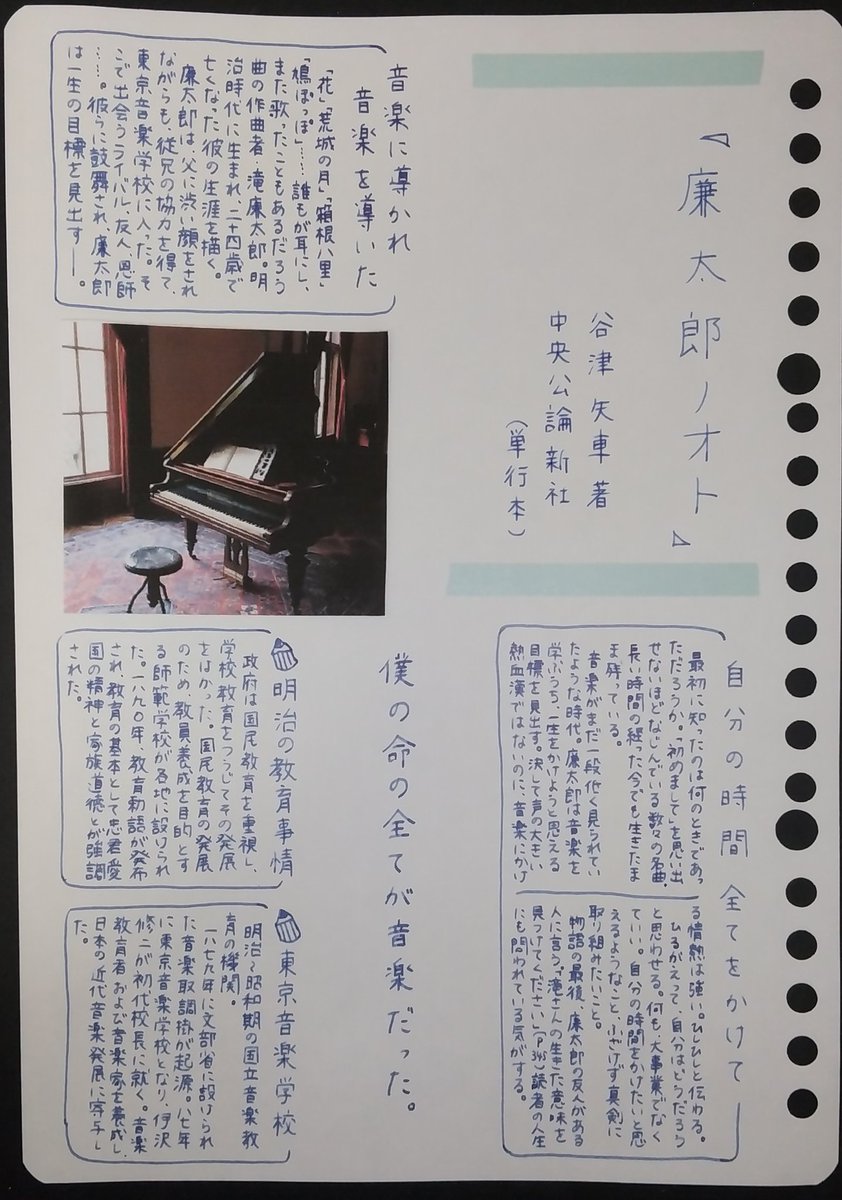 『廉太郎ノオト』
谷津矢車 著
中央公論新社
（単行本）
音楽に導かれ
音楽を導いた
「花」「荒城の月」「箱根八里」
「鳩ぽっぽ」……誰もが耳にし、
また歌ったこともあるだろう
曲の作曲者・滝廉太郎。明
治時代に生まれ、二十四歳で
亡くなった彼の生涯を描く。
廉太郎は、父に渋い顔をされ
ながらも、従兄の協力を得て、
東京音楽学校に入った。そ
こで出会うライバル、友人、恩師
……。彼らに鼓舞され、廉太郎
は一生の目標を見出す――。
自分の時間 全てをかけて
最初に知ったのは何のときであっ
ただろうか。「初めまして」を思い出
せないほどなじんでいる数々の名曲。
長い時間の経った今でも生きたま
ま残っている。
音楽がまだ一段低く見られてい
たような時代。廉太郎は音楽を
学ぶうち、一生をかけようと思える
目標を見出す。決して声の大きい
熱血漢ではないのに、音楽にかけ
る情熱は強い。ひしひしと伝わる。
ひるがえって、自分はどうだろう
と思わせる。何も、大事業でなく
ていい。自分の時間をかけたいと思
えるようなこと、ふざけず真剣に
取り組みたいこと。
物語の最後、廉太郎の友人がある
人に言う「滝さんの生きた意味を
見つけてください」(P345)読者の人生
にも問われている気がする。
僕の命の全てが音楽だった。
明治の教育事情
政府は国民教育を重視し、
学校教育をつうじてその発展
をはかった。国民教育の発展
のため、教員養成を目的とす
る師範学校が各地に設けられ
た。一八九〇年、教育勅語が発布
され、教育の基本として忠君愛
国の精神と家族道徳とが強調
された。
東京音楽学校
明治〜昭和期の国立音楽教
育の機関。
一八七九年に文部省に設けられ
た音楽取調掛が起源。八七年
に東京音楽学校となり、伊沢
修二が初代校長に就く。音楽
教育者および音楽家を養成し、
日本の近代音楽発展に寄与し
た。